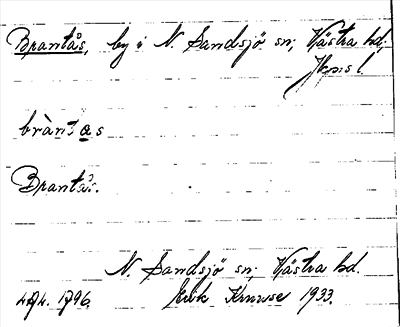 Brantås, by i N. Sandsjö sn; Västra hd;
Jkpgs l.
bràntas
Brantås.
N. Sandsjö sn; Västra hd.
1796. Erik Kruuse 1933.